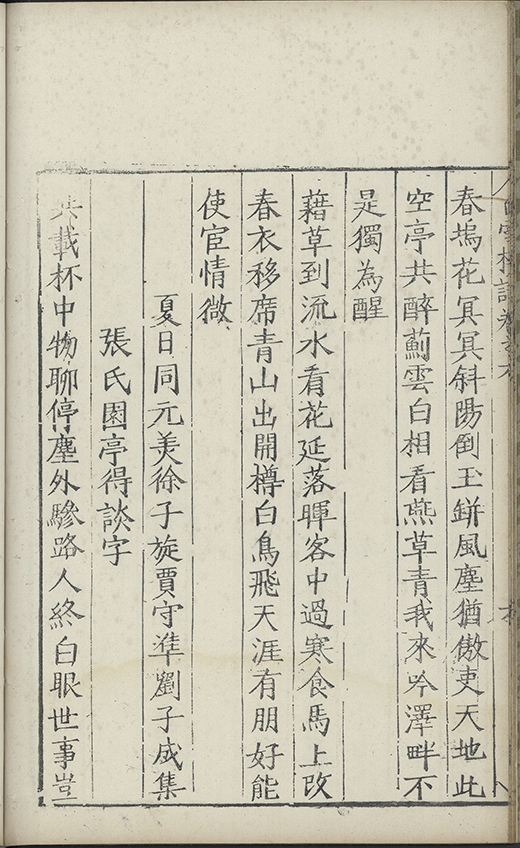 春塢花冥冥斜陽倒玉缾風塵猶傲吏天地此
空亭共醉薊雲白相看燕草青我來吟澤畔不
是獨為醒
藉草到流水看花延落暉客中過寒食馬上改
春衣移席青山出開樽白鳥飛天涯有朋好能
使宦情微
夏日同元美徐子旋賈守準劉子成集
張氏園亭得談字
共載杯中物聊停塵外驂路人終白眼世事豈